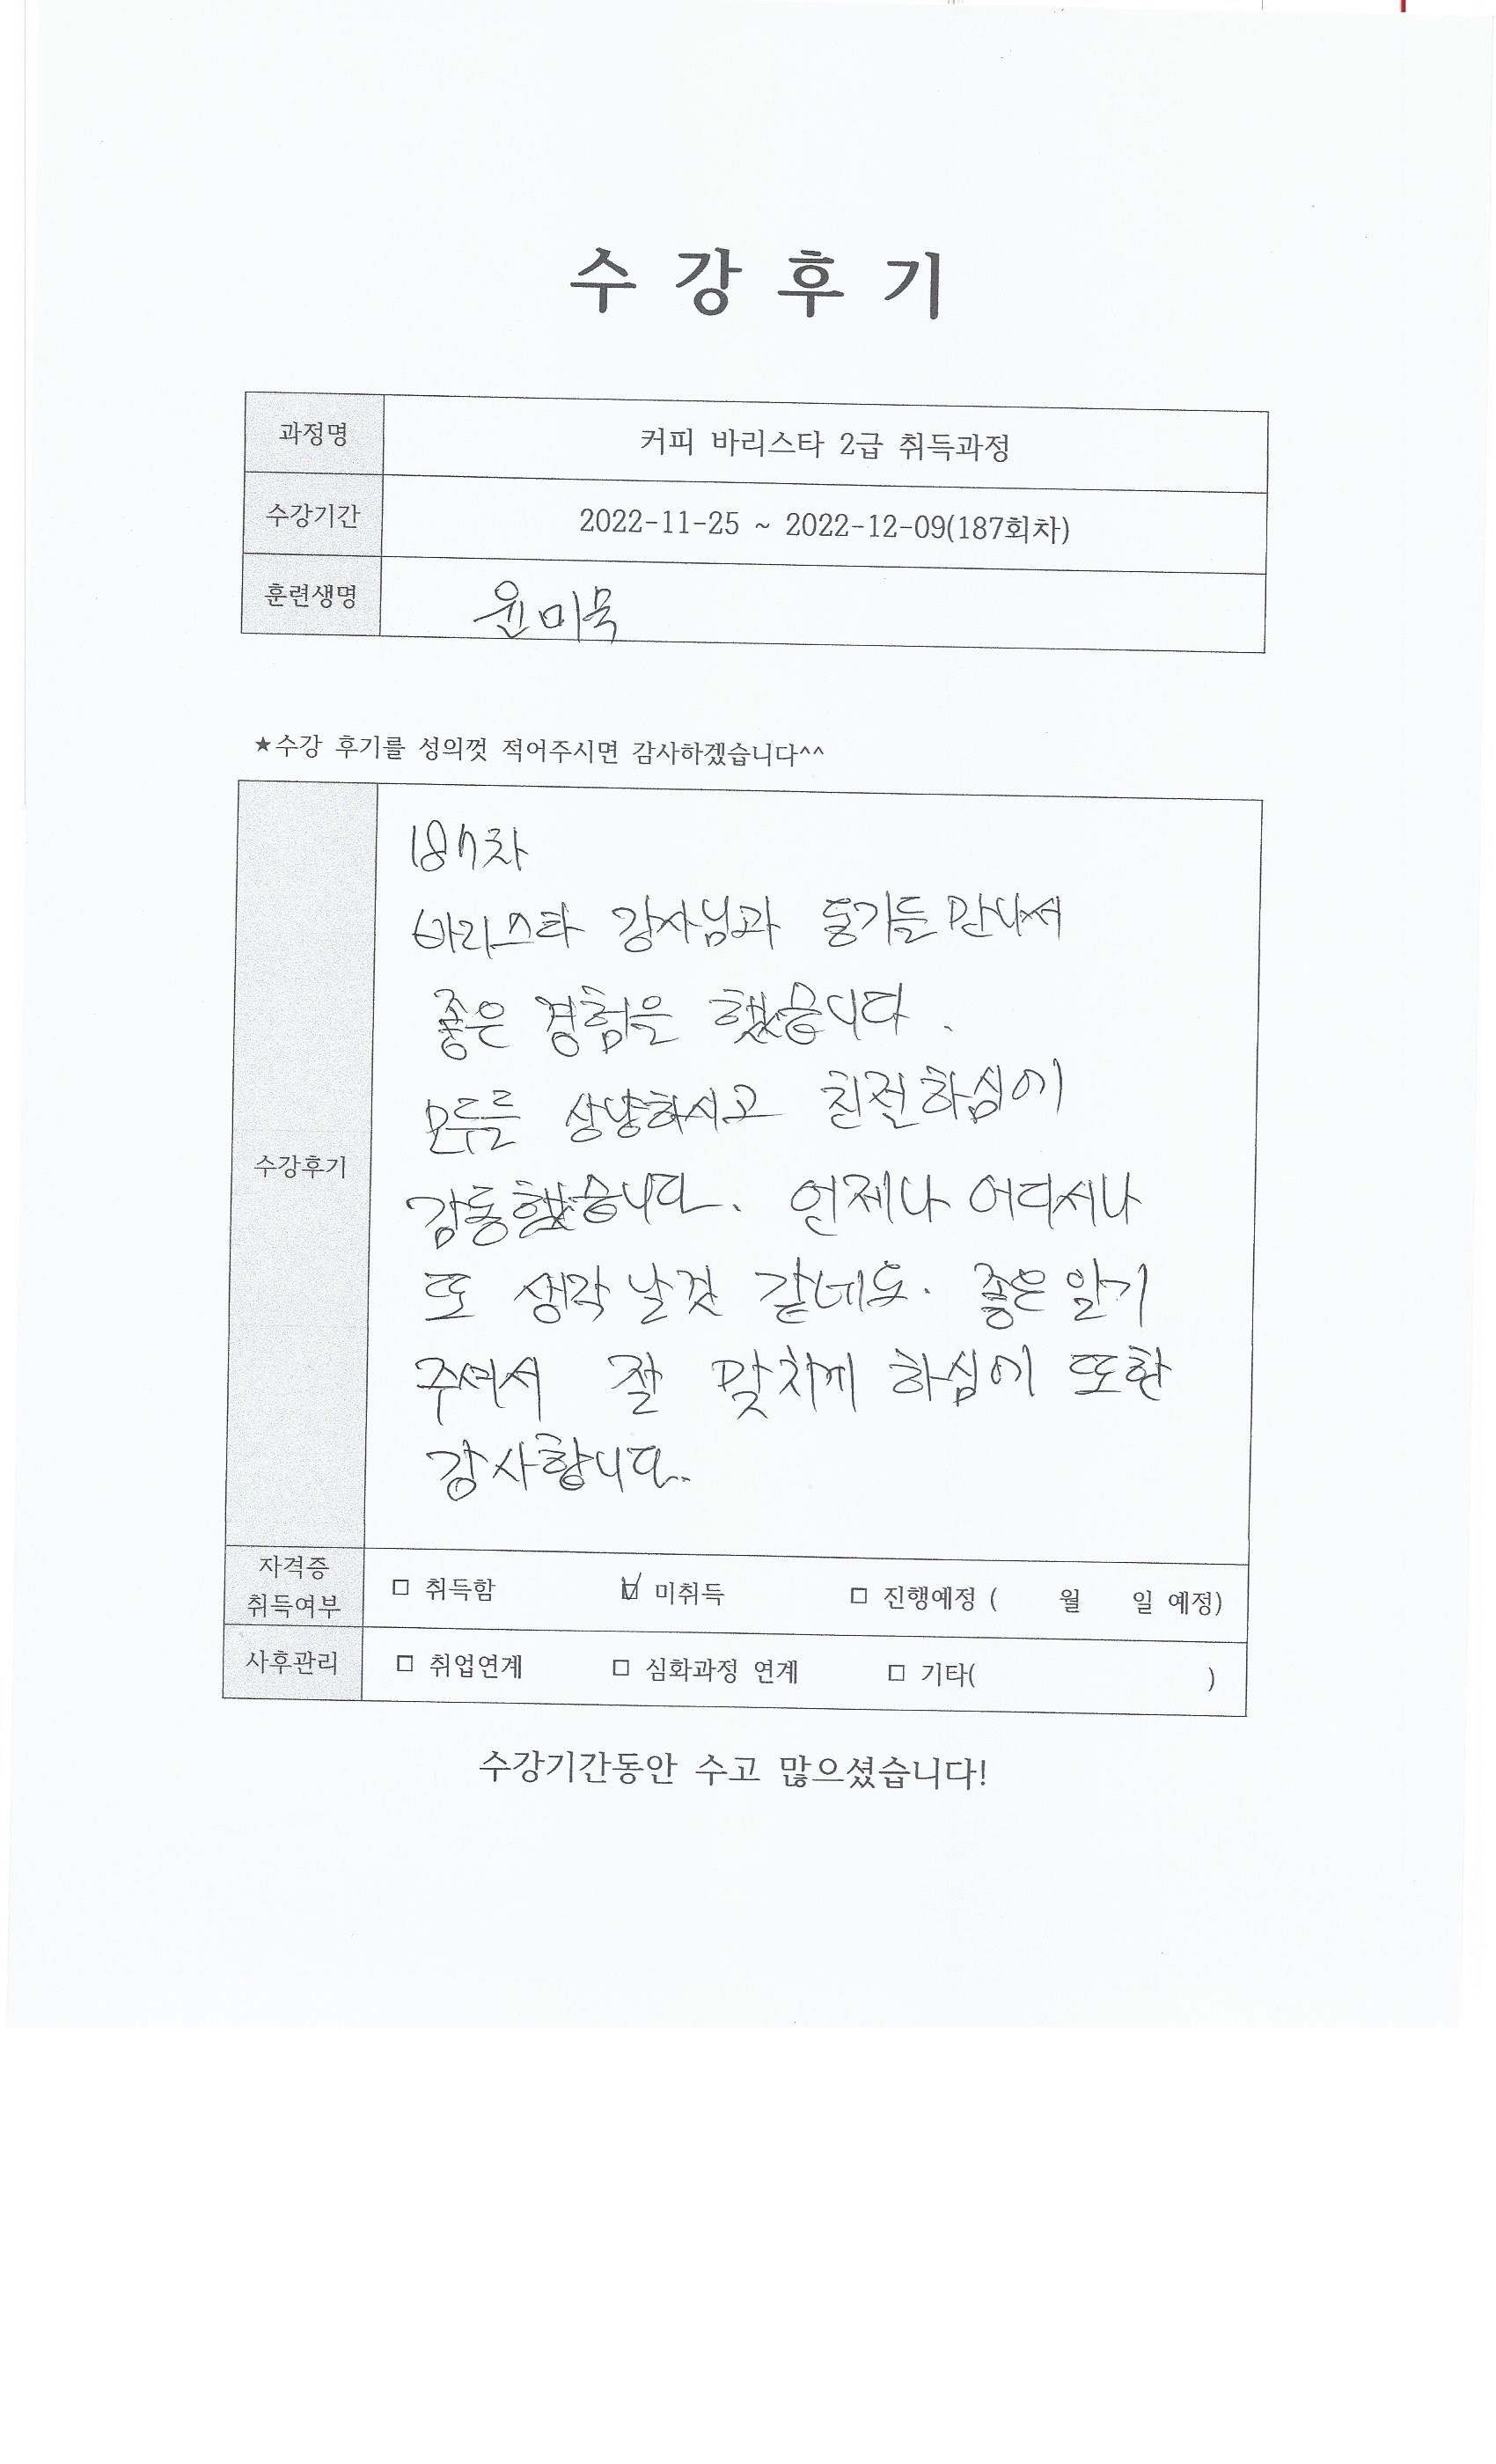 수강후기
과정명 커피 바리스타 2급 취득과정
수강기간 2022-11-25 ~ 2022-12-09(187회차)
훈련생명 윤미옥
★수강 후기를 성의껏 적어주시면 감사하겠습니다^^
수강후기
187차
바리스타 강사님과 동기들 만나서
좋은 경험을 했습니다.
모두들 상냥하시고 친절하심에
감동했습니다. 언제나 어디서나
또 생각 날것 같네요. 좋은 일기
주셔서 잘 맞치게 하심에 또한
감사합니다.
자격증 취득여부 □ 취득함 ☑ 미취득 □ 진행예정 ( 월 일 예정)
사후관리 □ 취업연계 □ 심화과정 연계 □ 기타( )
수강기간동안 수고 많으셨습니다!